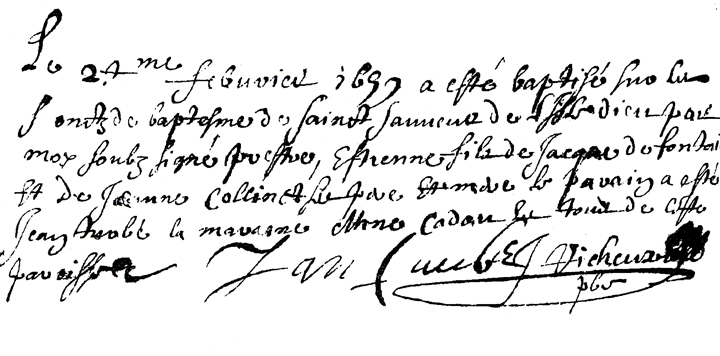 Le 24me febuvier 1657 a esté baptisé sur les
fontz de baptesme de Sainct Sauveur de Lisle dieu par
moy soubz signé prestre, Estienne filz de Jacque de fontai
Et de Jeanne Collinet le pere Et mere le parain a esté
Jean la maraine Cadou le tout de ceste
paroisse Jan
pbre